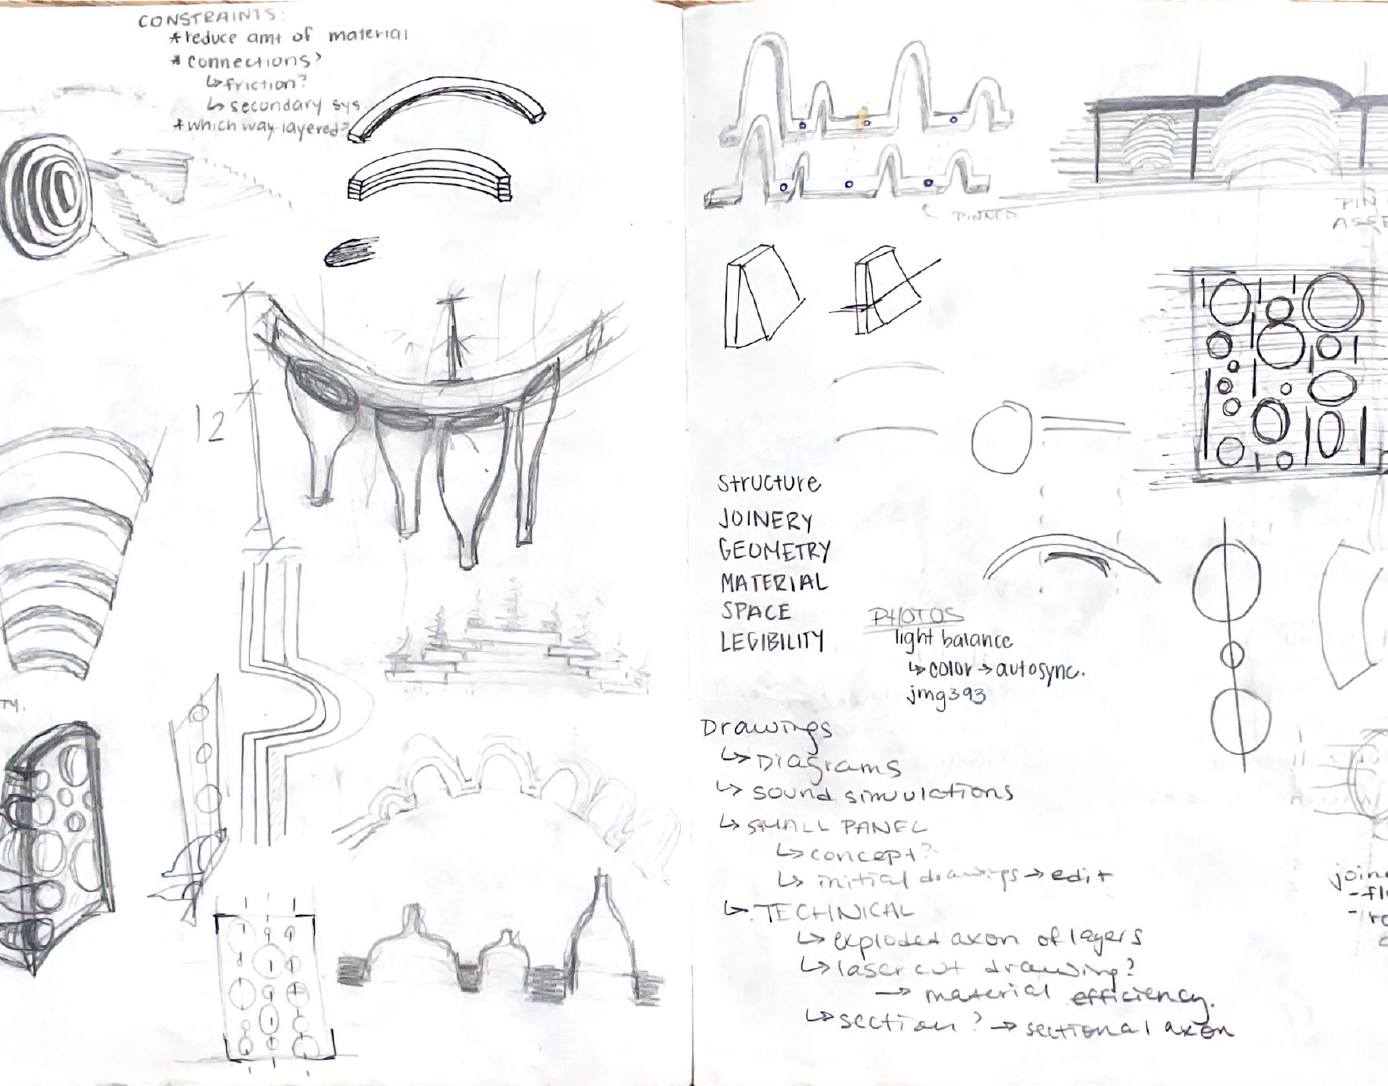 CONSTRAINTS:
*reduce amt of material
*connections?
↳friction?
↳secondary sys
*which way layered?
12
TY.
PINNED
PIN
ASSE
Structure
JOINERY
GEOMETRY
MATERIAL
SPACE
LEGIBILITY
PHOTOS
light balance
↳color→autosync.
jmg393
Drawings
↳Diagrams
↳sound simulations
↳SMALL PANEL
↳concept?
↳initial drawings→edit
↳TECHNICAL
↳exploded axon of layers
↳laser cut drawing?
→ material efficiency.
↳section? → sectional axon
joine